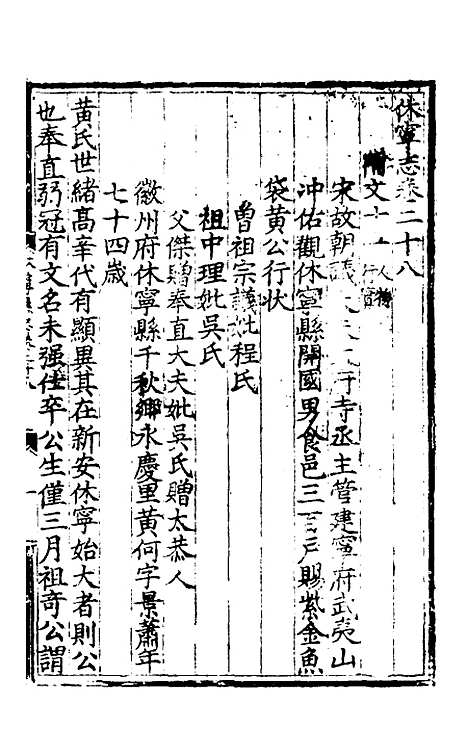 休寧志卷二十八
附文十一人物
宋故朝議大夫太府寺丞主管建寧府武夷山
冲佑觀休寧縣開國男食邑三百戶賜紫金魚
袋黄公行狀
曾祖宗議妣程氏
祖中理妣吳氏
父傑贈奉直大夫妣吳氏贈太恭人
徽州府休寧縣千秋鄉永慶里黄何字景蕭年
七十四歲
黄氏世緒高辛代有顯異其在新安休寧始大者則公
也奉直弱冠有文名未强仕卒公生僅三月祖奇公謂